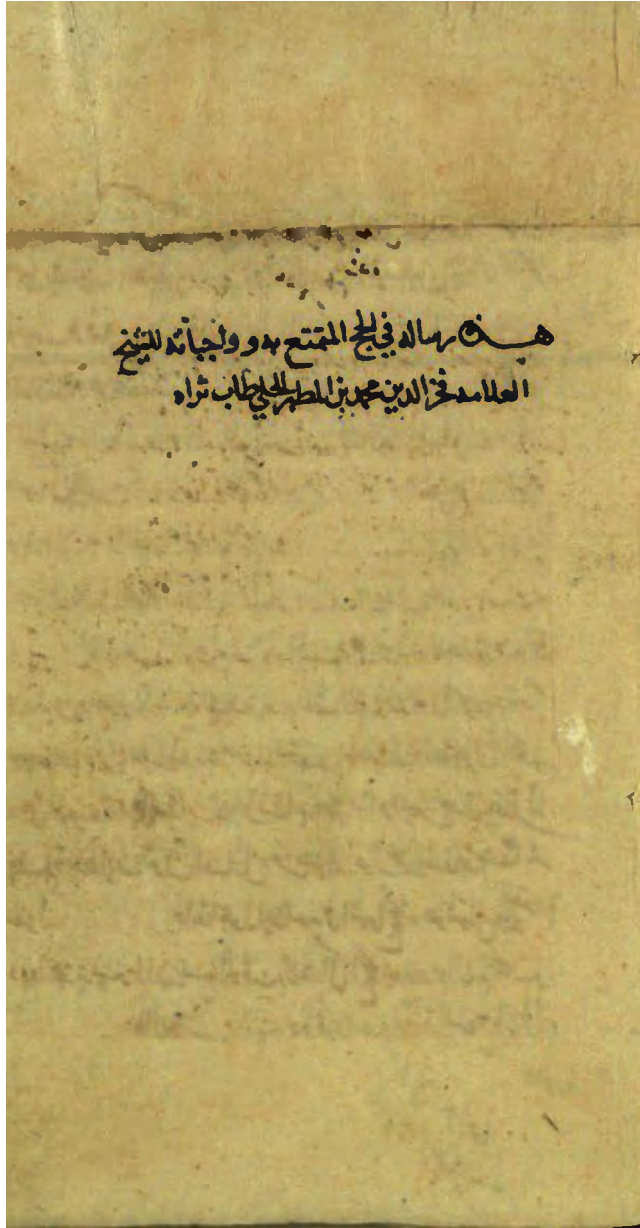 هذه رساله في الحج المتمتع به و واجباته للشيخ
العلامه فخر الدين محمد بن المطهر الحلي طاب ثراه